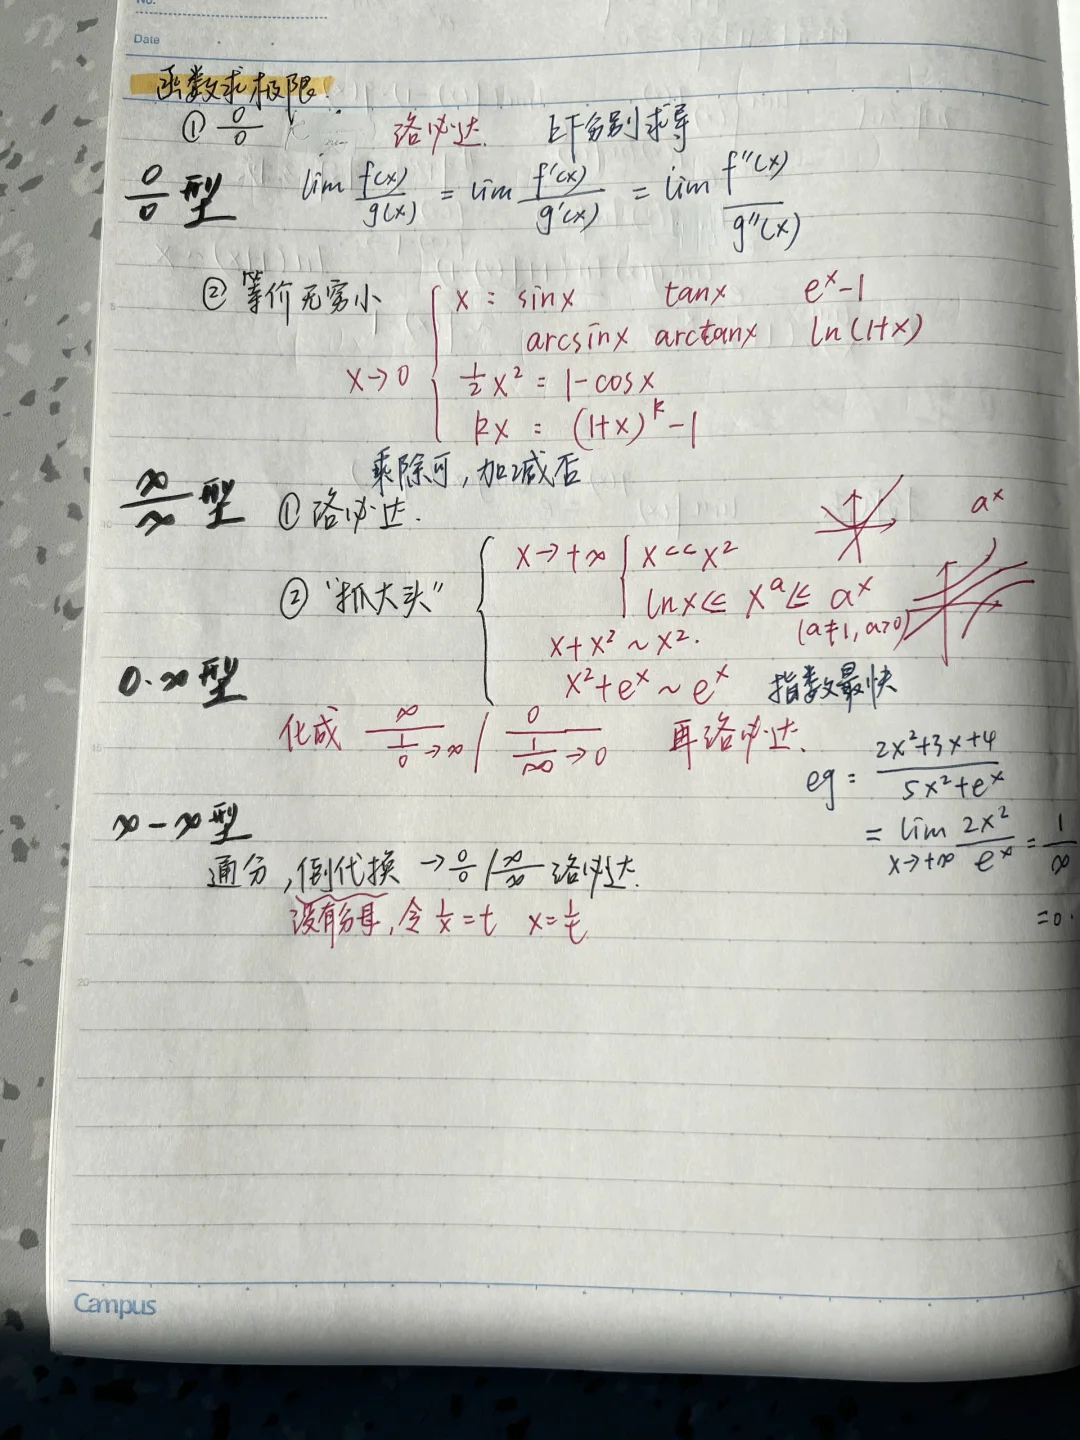 No.
Date
函数求极限.
① 0/0 洛必达. 上下分别求导
0/0 型 lim f(x)/g(x) = lim f'(x)/g'(x) = lim f''(x)/g''(x)
② 等价无穷小 x : sinx tanx e^x-1
arcsinx arctanx ln(1+x)
x→0 1/2 x² = 1-cosx
kx : (1+x)^k-1
乘除可,加减否
∞/∞ 型 ① 洛必达.
a^x
x→+∞ x<<x²
② "抓大头" lnx≤ x^a≤ a^x
(a≠1, a>0)
x+x²~x².
0·∞型 x²+e^x~e^x 指数最快
化成 ∞/(1/0)→∞ / 0/(1/∞)→0 再洛必达.
eg = (2x²+3x+4)/(5x²+e^x)
= lim x→+∞ 2x²/e^x = 1/∞
=0.
∞-∞型
通分,倒代换 →0/0 / ∞/∞ 洛必达.
没有分母,令 1/x=t x=1/t
5
10
15
20
Campus